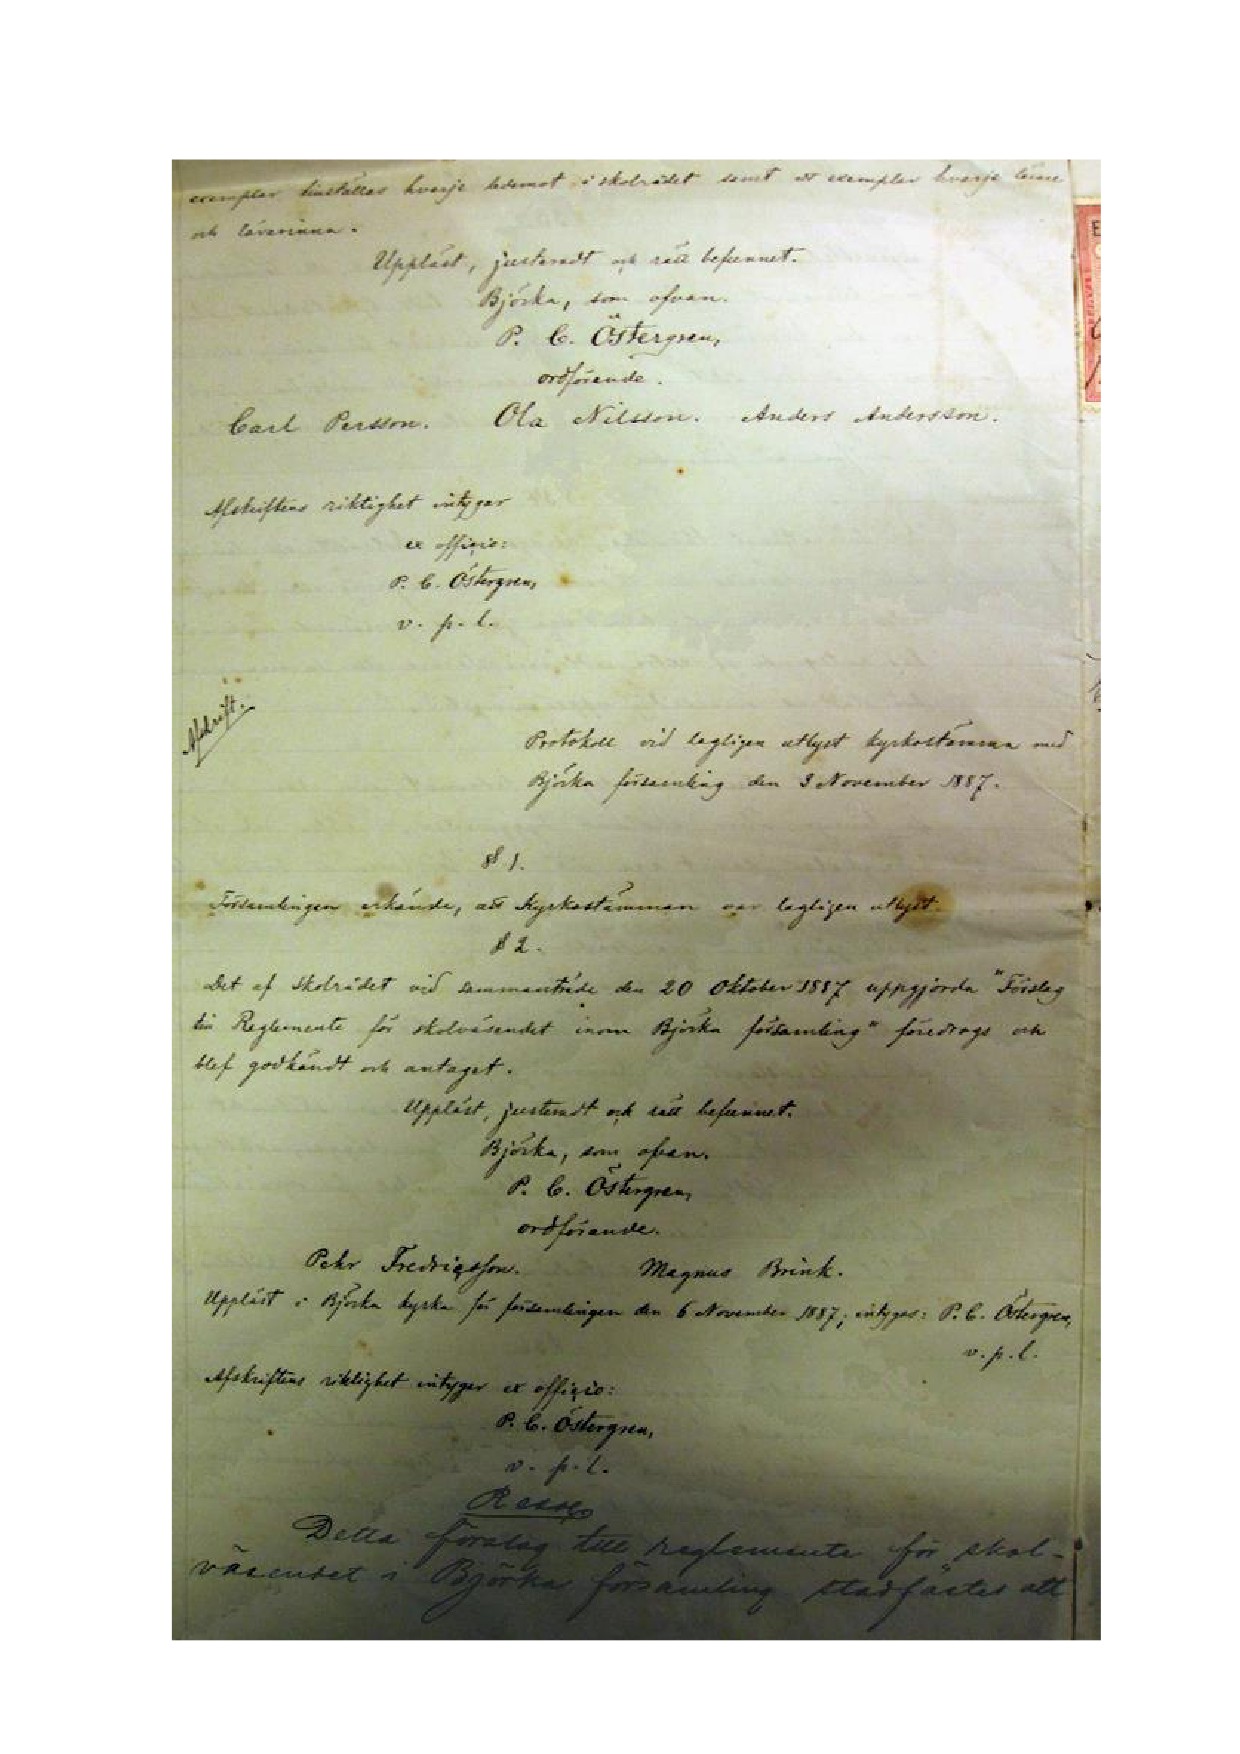 exemplar tillställas hvarje ledamot i skolrådet samt ett exemplar hvarje lärare
och lärarinna.
Uppläst, justeradt och rätt befunnet.
Björka, som ofvan.
P. C. Östergren,
ordförande.
Carl Persson. Ola Nilsson. Anders Andersson.
Afskriftens riktighet intygar
ex officio:
P. C. Östergren,
v. p. l.
Afskrift.
Protokoll vid lagligen utlyst kyrkostämma med
Björka församling den 3 November 1887.
§ 1.
Församlingen erkände, att Kyrkostämman var lagligen utlyst.
§ 2.
Det af Skolrådet vid sammanträde den 20 Oktober 1887 uppgjorda "Förslag
till Reglemente för skolväsendet inom Björka församling" föredrogs och
blef godkändt och antaget.
Uppläst, justeradt och rätt befunnet.
Björka, som ofvan.
P. C. Östergren,
ordförande.
Pehr Fredriqsson. Magnus Brink.
Uppläst i Björka kyrka för församlingen den 6 November 1887; intygas: P. C. Östergren,
v. p. l.
Afskriftens riktighet intygar ex officio:
P. C. Östergren,
v. p. l.
Detta förslag till reglemente för skol-
väsendet i Björka församling stadfästes att